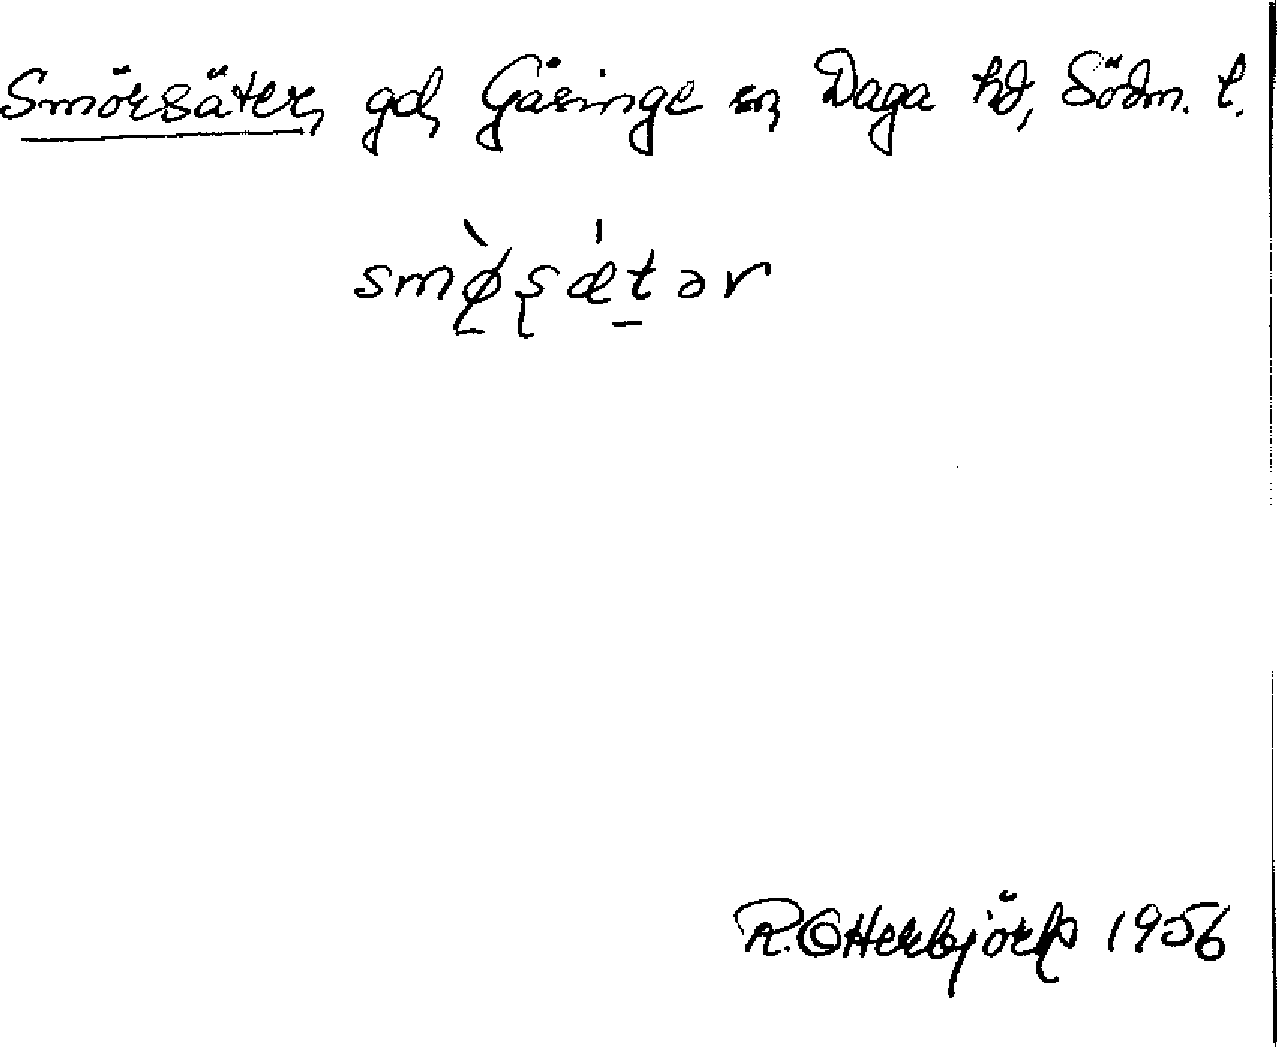 Smörsäter, gd, Gåsinge sn, Daga hd, Södm. l.
smø̀ʂæ̍tər
R. Otterbjörk 1956